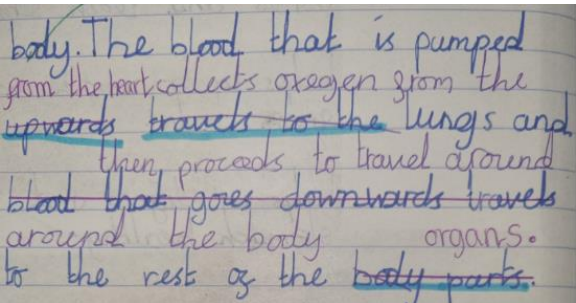 body. The blood that is pumped
from the heart collects oxegen from the
upwards travels to the lungs and
then proceeds to travel around
blood that goes downwards travels
around the body organs.
to the rest of the body parts.